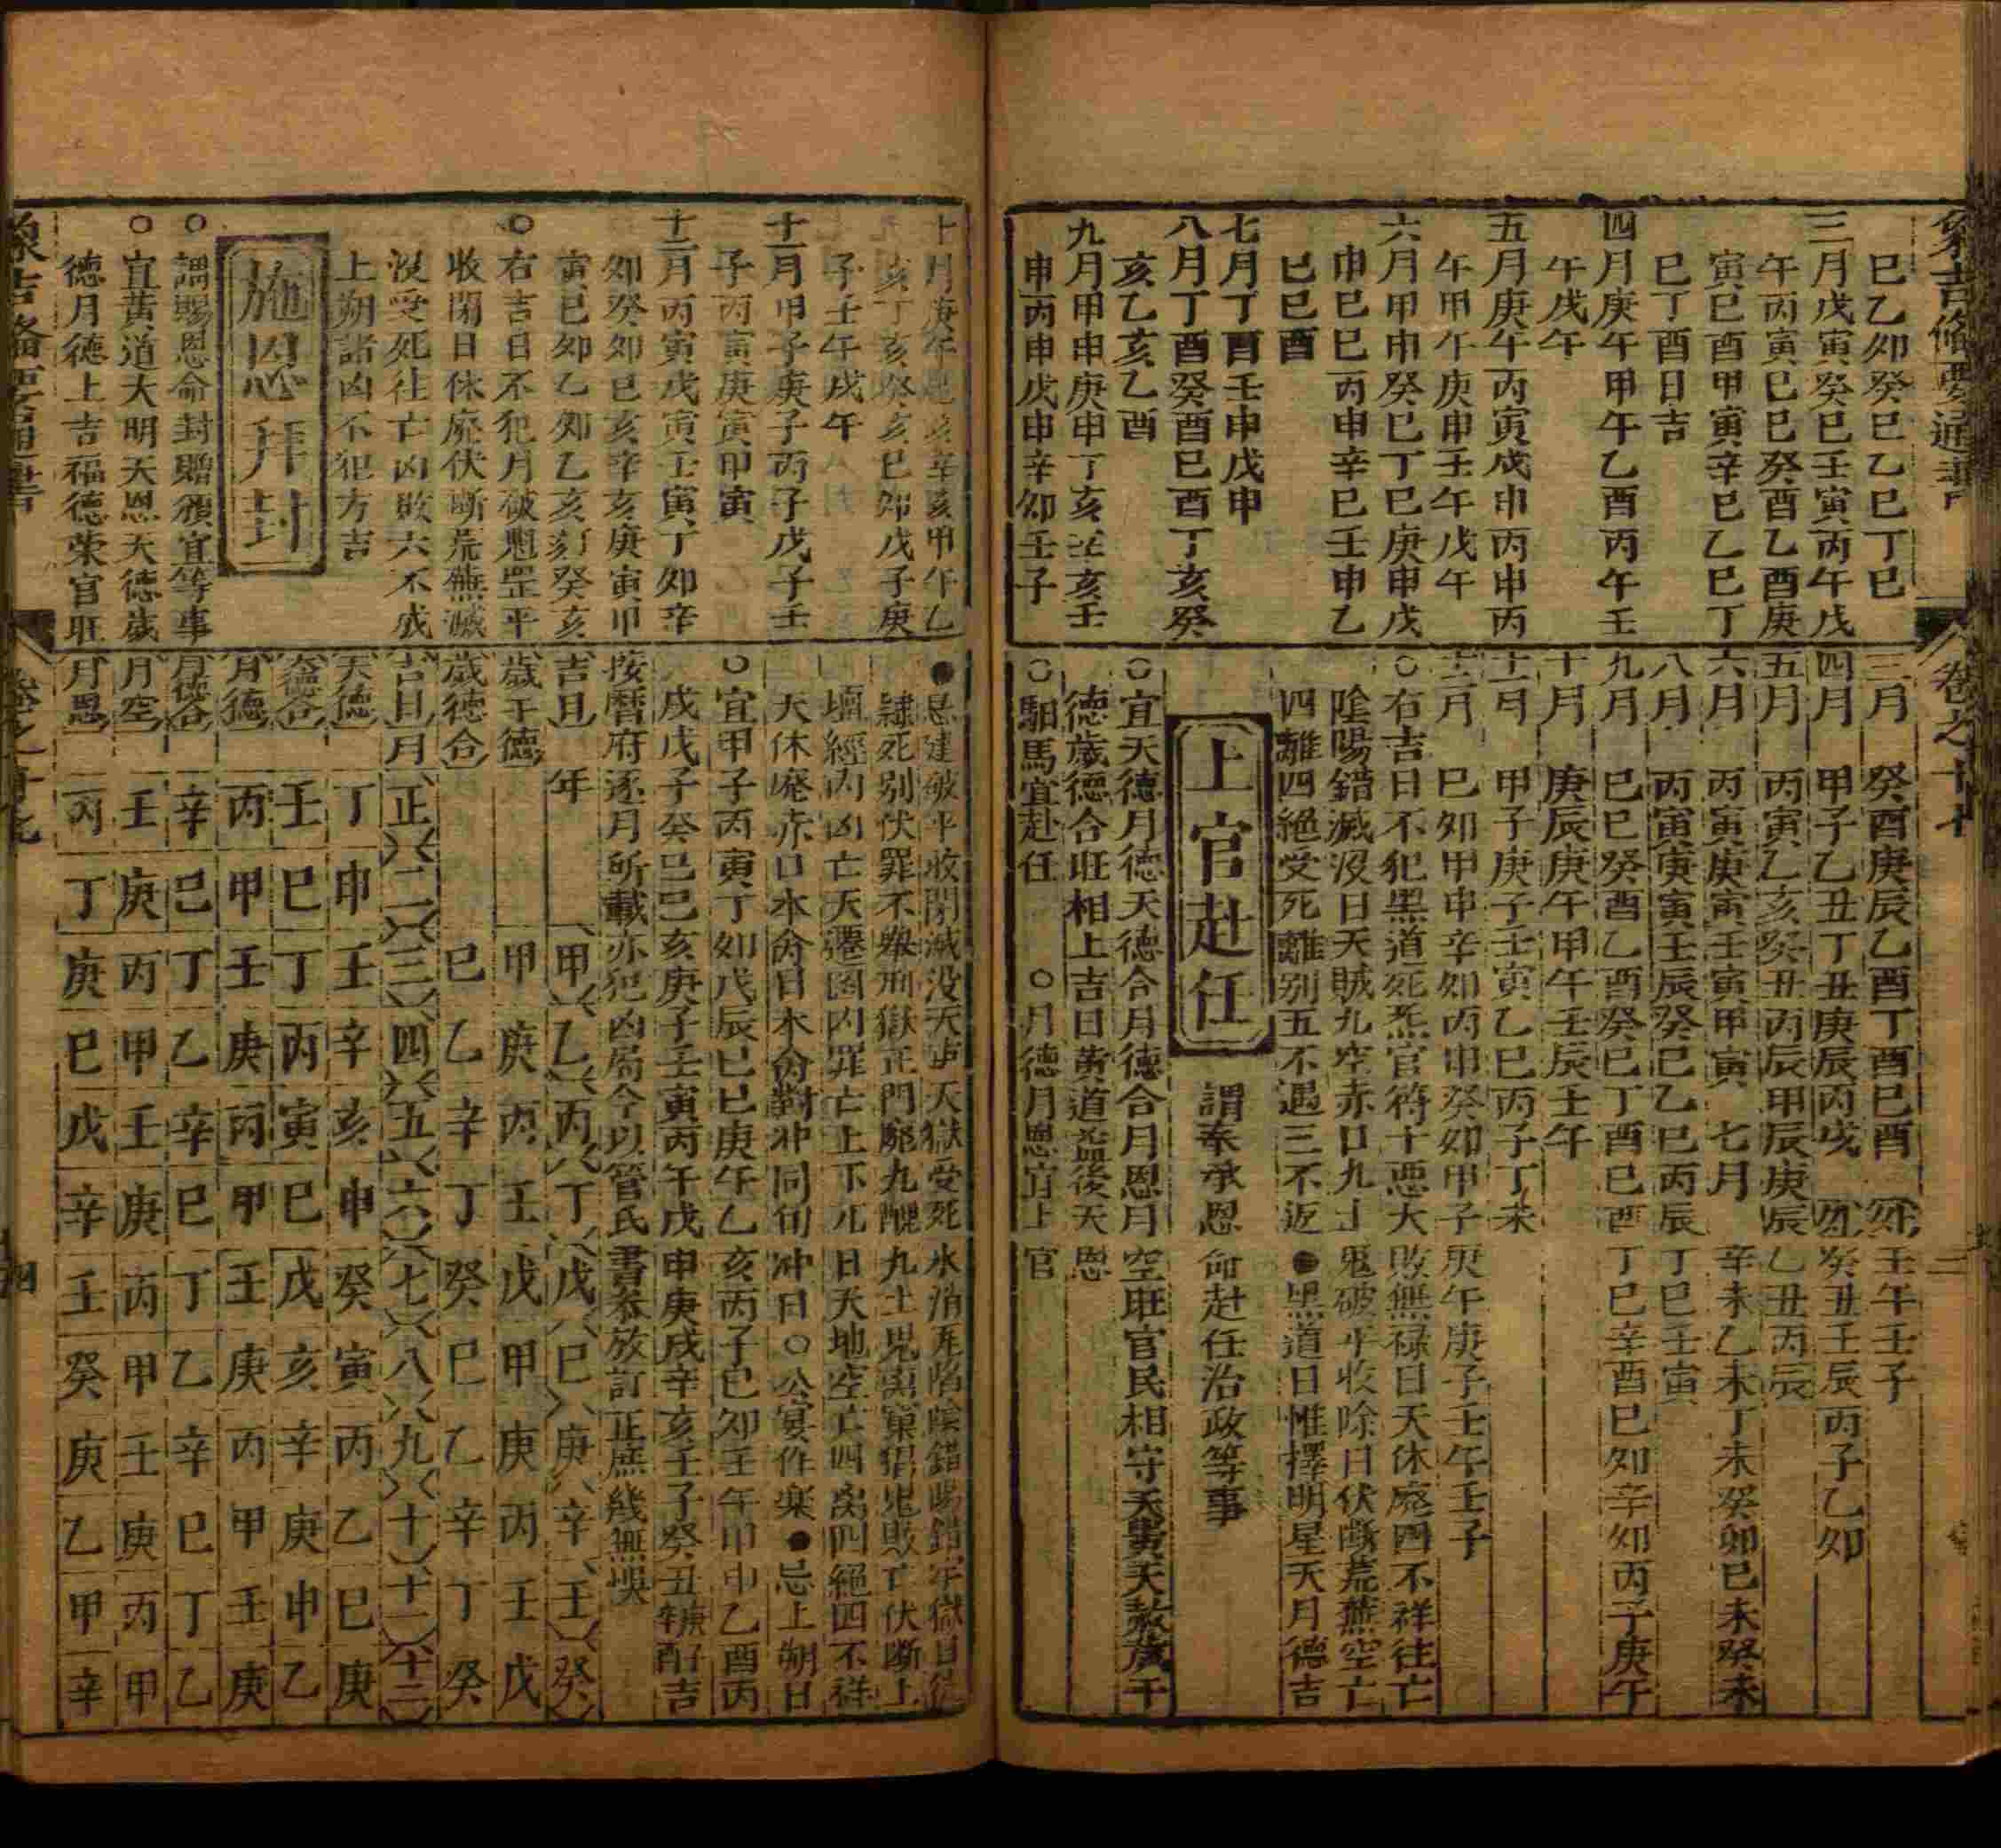 象吉備要通書
卷之十七
巳乙卯癸巳乙巳丁巳
三月戊寅癸巳壬寅丙午戊
午丙寅巳巳癸酉乙酉庚
寅巳酉甲寅辛巳乙巳丁
巳丁酉日吉
四月庚午甲午乙酉丙午壬
午戌午
五月庚午丙寅戍申丙申丙
午甲午庚申壬午戊午
六月甲申癸巳丁巳庚申戊
申巳巳丙申辛巳壬申乙
巳巳酉
七月丁酉壬申戊申
八月丁酉癸酉巳酉丁亥癸
亥乙亥乙酉
九月甲申庚申丁亥辛亥壬
申丙申戊申辛卯壬子
三月 癸酉庚辰乙酉丁酉巳酉 壬午壬子
四月 甲子乙丑丁丑庚辰丙戌 癸丑壬辰丙子乙卯
五月 丙寅乙亥癸丑丙辰甲辰庚辰 乙丑丙辰
六月 丙寅庚寅壬寅甲寅 七月 辛未乙未丁未癸卯巳未癸未
八月 丙寅庚寅壬辰癸巳乙巳丙辰 丁巳壬寅
九月 巳巳癸酉乙酉癸巳丁酉巳酉 丁巳辛酉巳卯辛卯丙子庚午
十月 庚辰庚午甲午壬辰壬午
十一月 甲子庚子壬寅乙巳丙子丁未
十二月 巳卯甲申辛卯丙申癸卯甲子 庚午庚子壬午壬子
○右吉日不犯黑道死炁官符十惡大敗無祿日天休廢四不祥往亡
陰陽錯滅没日天賊九空赤口九土鬼破平收除日伏斷荒蕪空亡
四離四絕受死離别五不遇三不返●黑道日惟擇明星天月德吉
上官赴任 謂奉承恩命赴任治政等事
○宜天德月德天德合月德合月恩月空旺官民相守天貴天赦歲干
德歲德合旺相上吉日黄道益後天恩
○馹馬宜赴任 ○月德月恩宜上官
十月庚午
亥丁亥癸亥巳卯戊子庚
子壬午戌午
十一月甲子庚子丙子戊子壬
子丙寅庚寅甲寅
十二月丙寅戊寅壬寅丁卯辛
卯癸卯巳亥辛亥庚寅甲
寅巳卯乙卯乙亥癸亥
○右吉日不犯月破魁罡平
收閉日休廢伏斷荒蕪滅
没受死往亡凶敗六不成
上朔諸凶不犯方吉
施恩拜封
○謂賜恩命封贈頒宜等事
○宜黃道大明天恩天德歲
德月德上吉福德荣官旺
●忌建破平收閉滅没天賊天獄受死氷消瓦陷陰錯陽錯牢獄日徒
隷死别伏罪不舉刑獄正門廢九醜九土鬼離窠猖鬼敗亡伏斷上
天休廢赤口木㑹日木㑹對冲同旬冲日○公宴作楽●忌上朔日
○宜甲子丙寅丁卯戊辰巳巳庚午乙亥丙子巳卯壬午甲申乙酉丙
戌戊子癸巳巳亥庚子壬寅丙午戊申庚戌辛亥壬子癸丑
按曆府逐月所載亦犯凶局今以管氏書參放訂正庶幾無悞
吉日 年 甲 乙 丙 丁 戊 巳 庚 辛 壬 癸
歲干德 甲 庚 丙 壬 戊 甲 庚 丙 壬 戊
歲德合 巳 乙 辛 丁 癸 巳 乙 辛 丁 癸
吉日 月 正 二 三 四 五 六 七 八 九 十 十一 十二
天德 丁 申 壬 辛 亥 申 癸 寅 丙 乙 巳 庚
天德合 壬 巳 丁 丙 寅 巳 戊 亥 辛 庚 申 乙
月德 丙 甲 壬 庚 丙 甲 壬 庚 丙 甲 壬 庚
月德合 辛 巳 丁 乙 辛 巳 丁 乙 辛 巳 丁 乙
月空 壬 庚 丙 甲 壬 庚 丙 甲 壬 庚 丙 甲
月恩 丙 丁 庚 巳 戊 辛 壬 癸 庚 乙 甲 辛